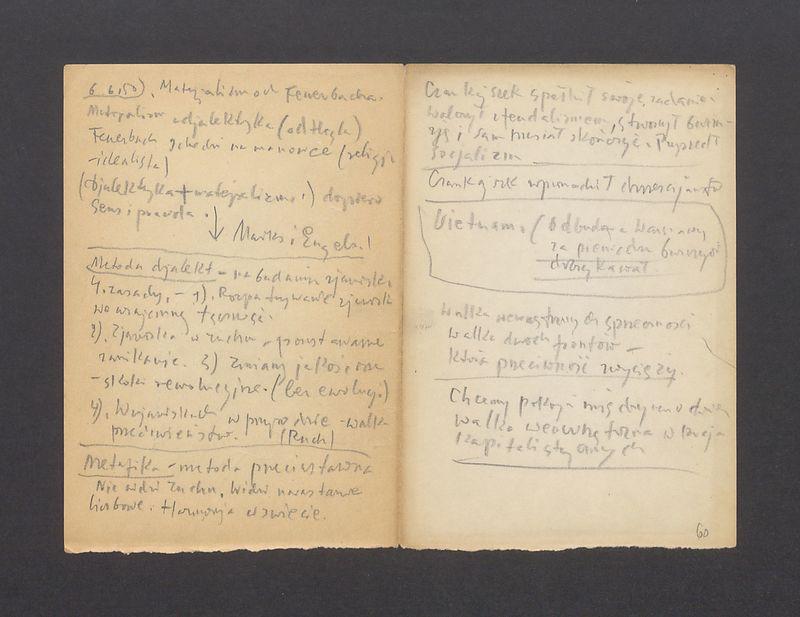 6.6.50). Materjalizm od Feuerbacha.
Materjalizm i djalektyka (odległa)
Feuerbach schodzi na manowce (religja
-idealista)
(Djalektyka + materjalizm!) dopiero
Sens i prawda.
↓ Marks i Engels!
Metoda djalekt - na badaniu zjawisk
4. zasady, - 1). Rozpatrywanie zjawisk
we wzajemnej łączności.
2). Zjawiska w ruchu - powstawanie
zanikanie. 3) Zmiany jakościowe
- skoki rewolucyjne. (bez ewolucj.)
4). W zjawiskach w przyrodzie - walka
przeciwieństw. (Ruch)
Metafizka - metoda przeciwstawna
Nie widzi ruchu, widzi narastanie
liczbowe. Harmonja w świecie.
Czankajszek spełnił swoje zadanie
walczył z feudalizmem, stworzył burżu-
zję i sam musiał skończyć. Przyszedł
socjalizm
Czankajszek wprowadził chrześcijaństwo
Vietnam. (Odbudowa Warszawy
za pieniądze burżuazji
dobry kawał.
Walka wewnętrznych sprzeczności
walka dwóch frontów -
która przeciwność zwycięży.
Chcemy pokoju międzynarodow
walka wewnętrzna w kraja
kapitalistycznych
60